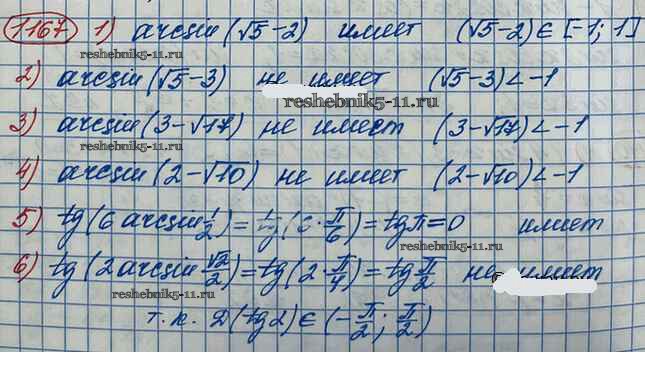 1167 1) arcsin (√5-2) имеет (√5-2)∈[-1; 1]
reshebnik5-11.ru
2) arcsin (√5-3) не имеет (√5-3)<-1
reshebnik5-11.ru
3) arcsin (3-√17) не имеет (3-√17)<-1
reshebnik5-11.ru
4) arcsin (2-√10) не имеет (2-√10)<-1
5) tg(6 arcsin 1/2) = tg(6·π/6) = tgπ=0 имеет
reshebnik5-11.ru
6) tg(2 arcsin √2/2) = tg(2·π/4) = tg π/2 не имеет
reshebnik5-11.ru
т.к. D(tg2)∈(-π/2; π/2)